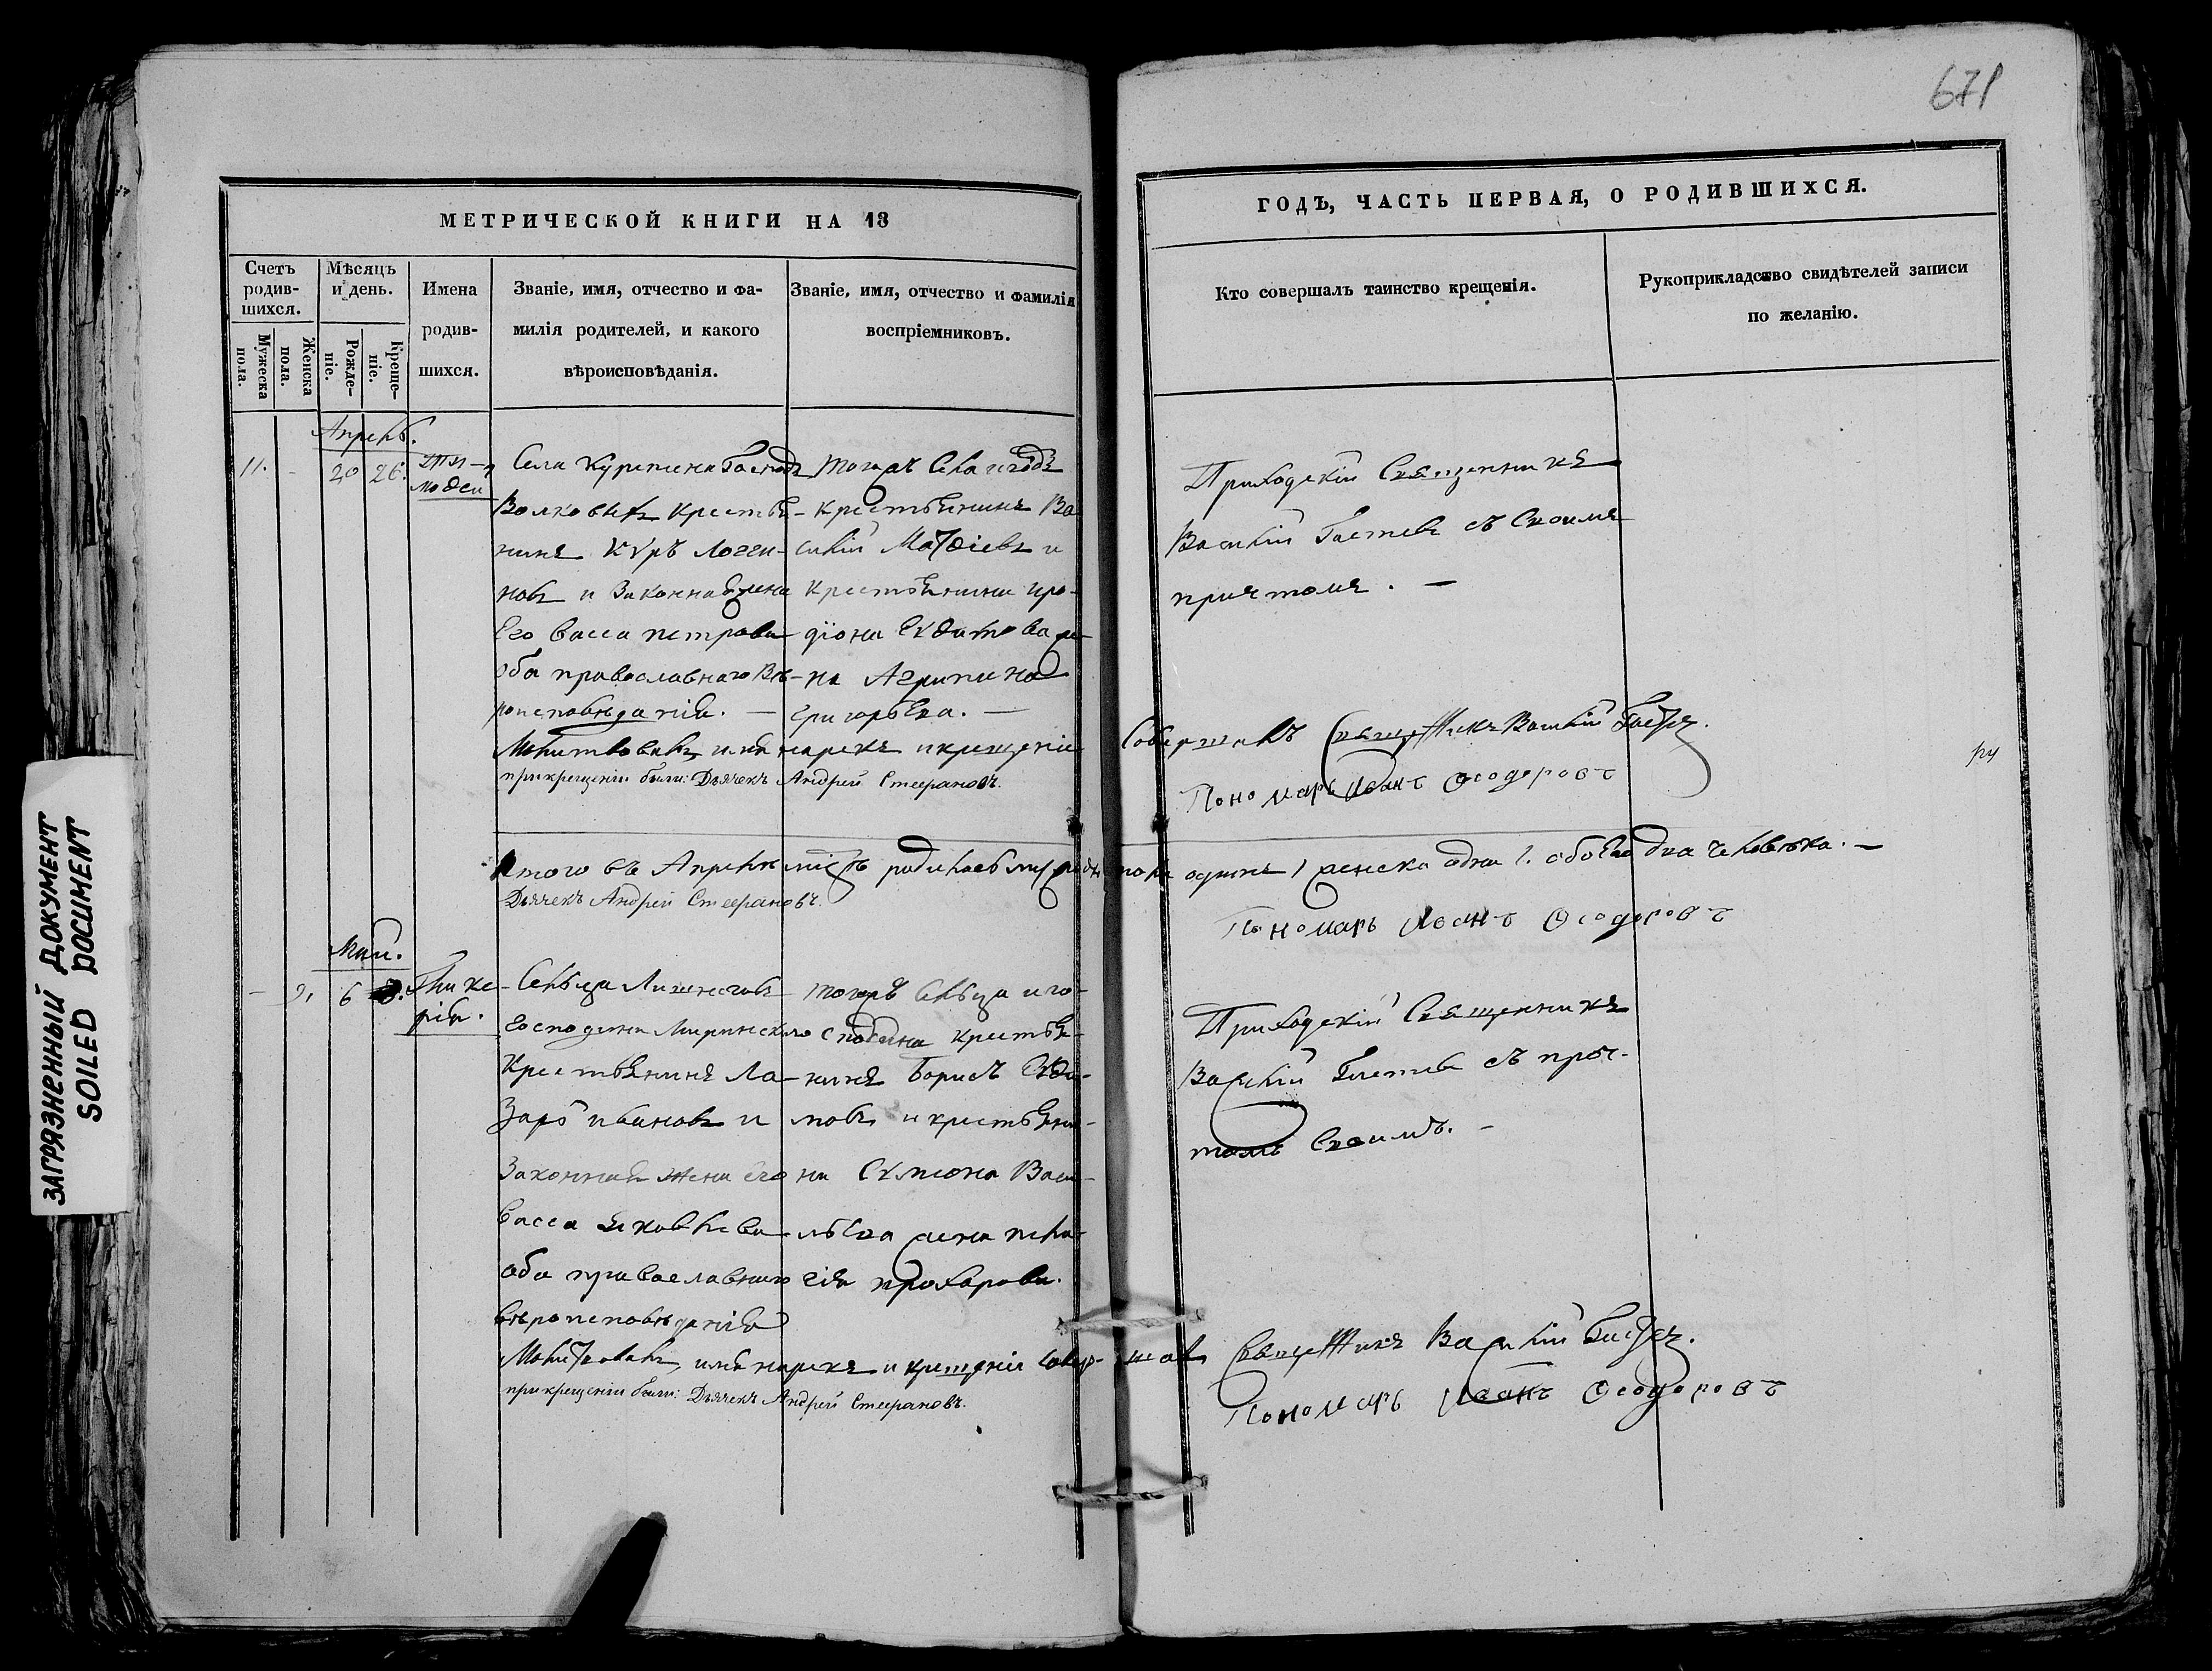 671
МЕТРИЧЕСКОЙ КНИГИ НА 18
ГОДЪ, ЧАСТЬ ПЕРВАЯ, О РОДИВШИХСЯ.
Счетъ родив-шихся.
Мужеска пола.
Женска пола.
Мѣсяцъ и день.
Рожде-ніе.
Креще-ніе.
Имена родив-шихся.
Званіе, имя, отчество и фа-
милія родителей, и какого
вѣроисповѣданія.
Званіе, имя, отчество и фамилія
воспріемниковъ.
Кто совершалъ таинство крещенія.
Рукоприкладство свидѣтелей записи
по желанію.
Апрель.
11. - 20 26.
Села Господъ
Волковыхъ крестья-
нинъ Кѵръ Логги-
новъ и Законная жена
Его Васса петрова
оба православнаго вѣ-
роисповѣданія. —
тогожъ Села
крестьянинъ Ва
силій Матѳіевъ и
крестьянина иро-
діона же-
на Агрипина
григорьева. —
Приходскій Священникъ
Василій съ Своимъ
причтомъ. —
Молитвовалъ, имя нарекъ и крещеніе
Совершалъ Священникъ Василій
при крещеніи были: Дьячекъ Андрей Стефановъ.
Пономарь Иванъ Ѳеодоровъ
Итого въ Апреле родилось мужеска пола одинъ 1 женска одна 1. обоего два человѣка. —
Дьячекъ Андрей Стефановъ.
Пономарь Иванъ Ѳеодоровъ
Маій.
- 9. 6 8. Глике-
рія.
Сельца
господина
Крестьянинъ Ла-
зарь ивановъ и
Законная жена его
Васса яковлева
оба православнаго
вѣроисповѣданія
тогожъ Сельца и го-
сподина крестья-
нинъ Борисъ
и крестьяни-
на Симиона Васи-
льева жена пела-
гія прохорова.
Приходскій Священникъ
Василій съ прич-
томъ Своимъ. -
Молитвовалъ, имя нарекъ и крещеніе совершалъ Священникъ Василій
при крещеніи были: Дьячекъ Андрей Стефановъ.
Пономарь Иванъ Ѳеодоровъ
ЗАГРЯЗНЕННЫЙ ДОКУМЕНТ
SOILED DOCUMENT